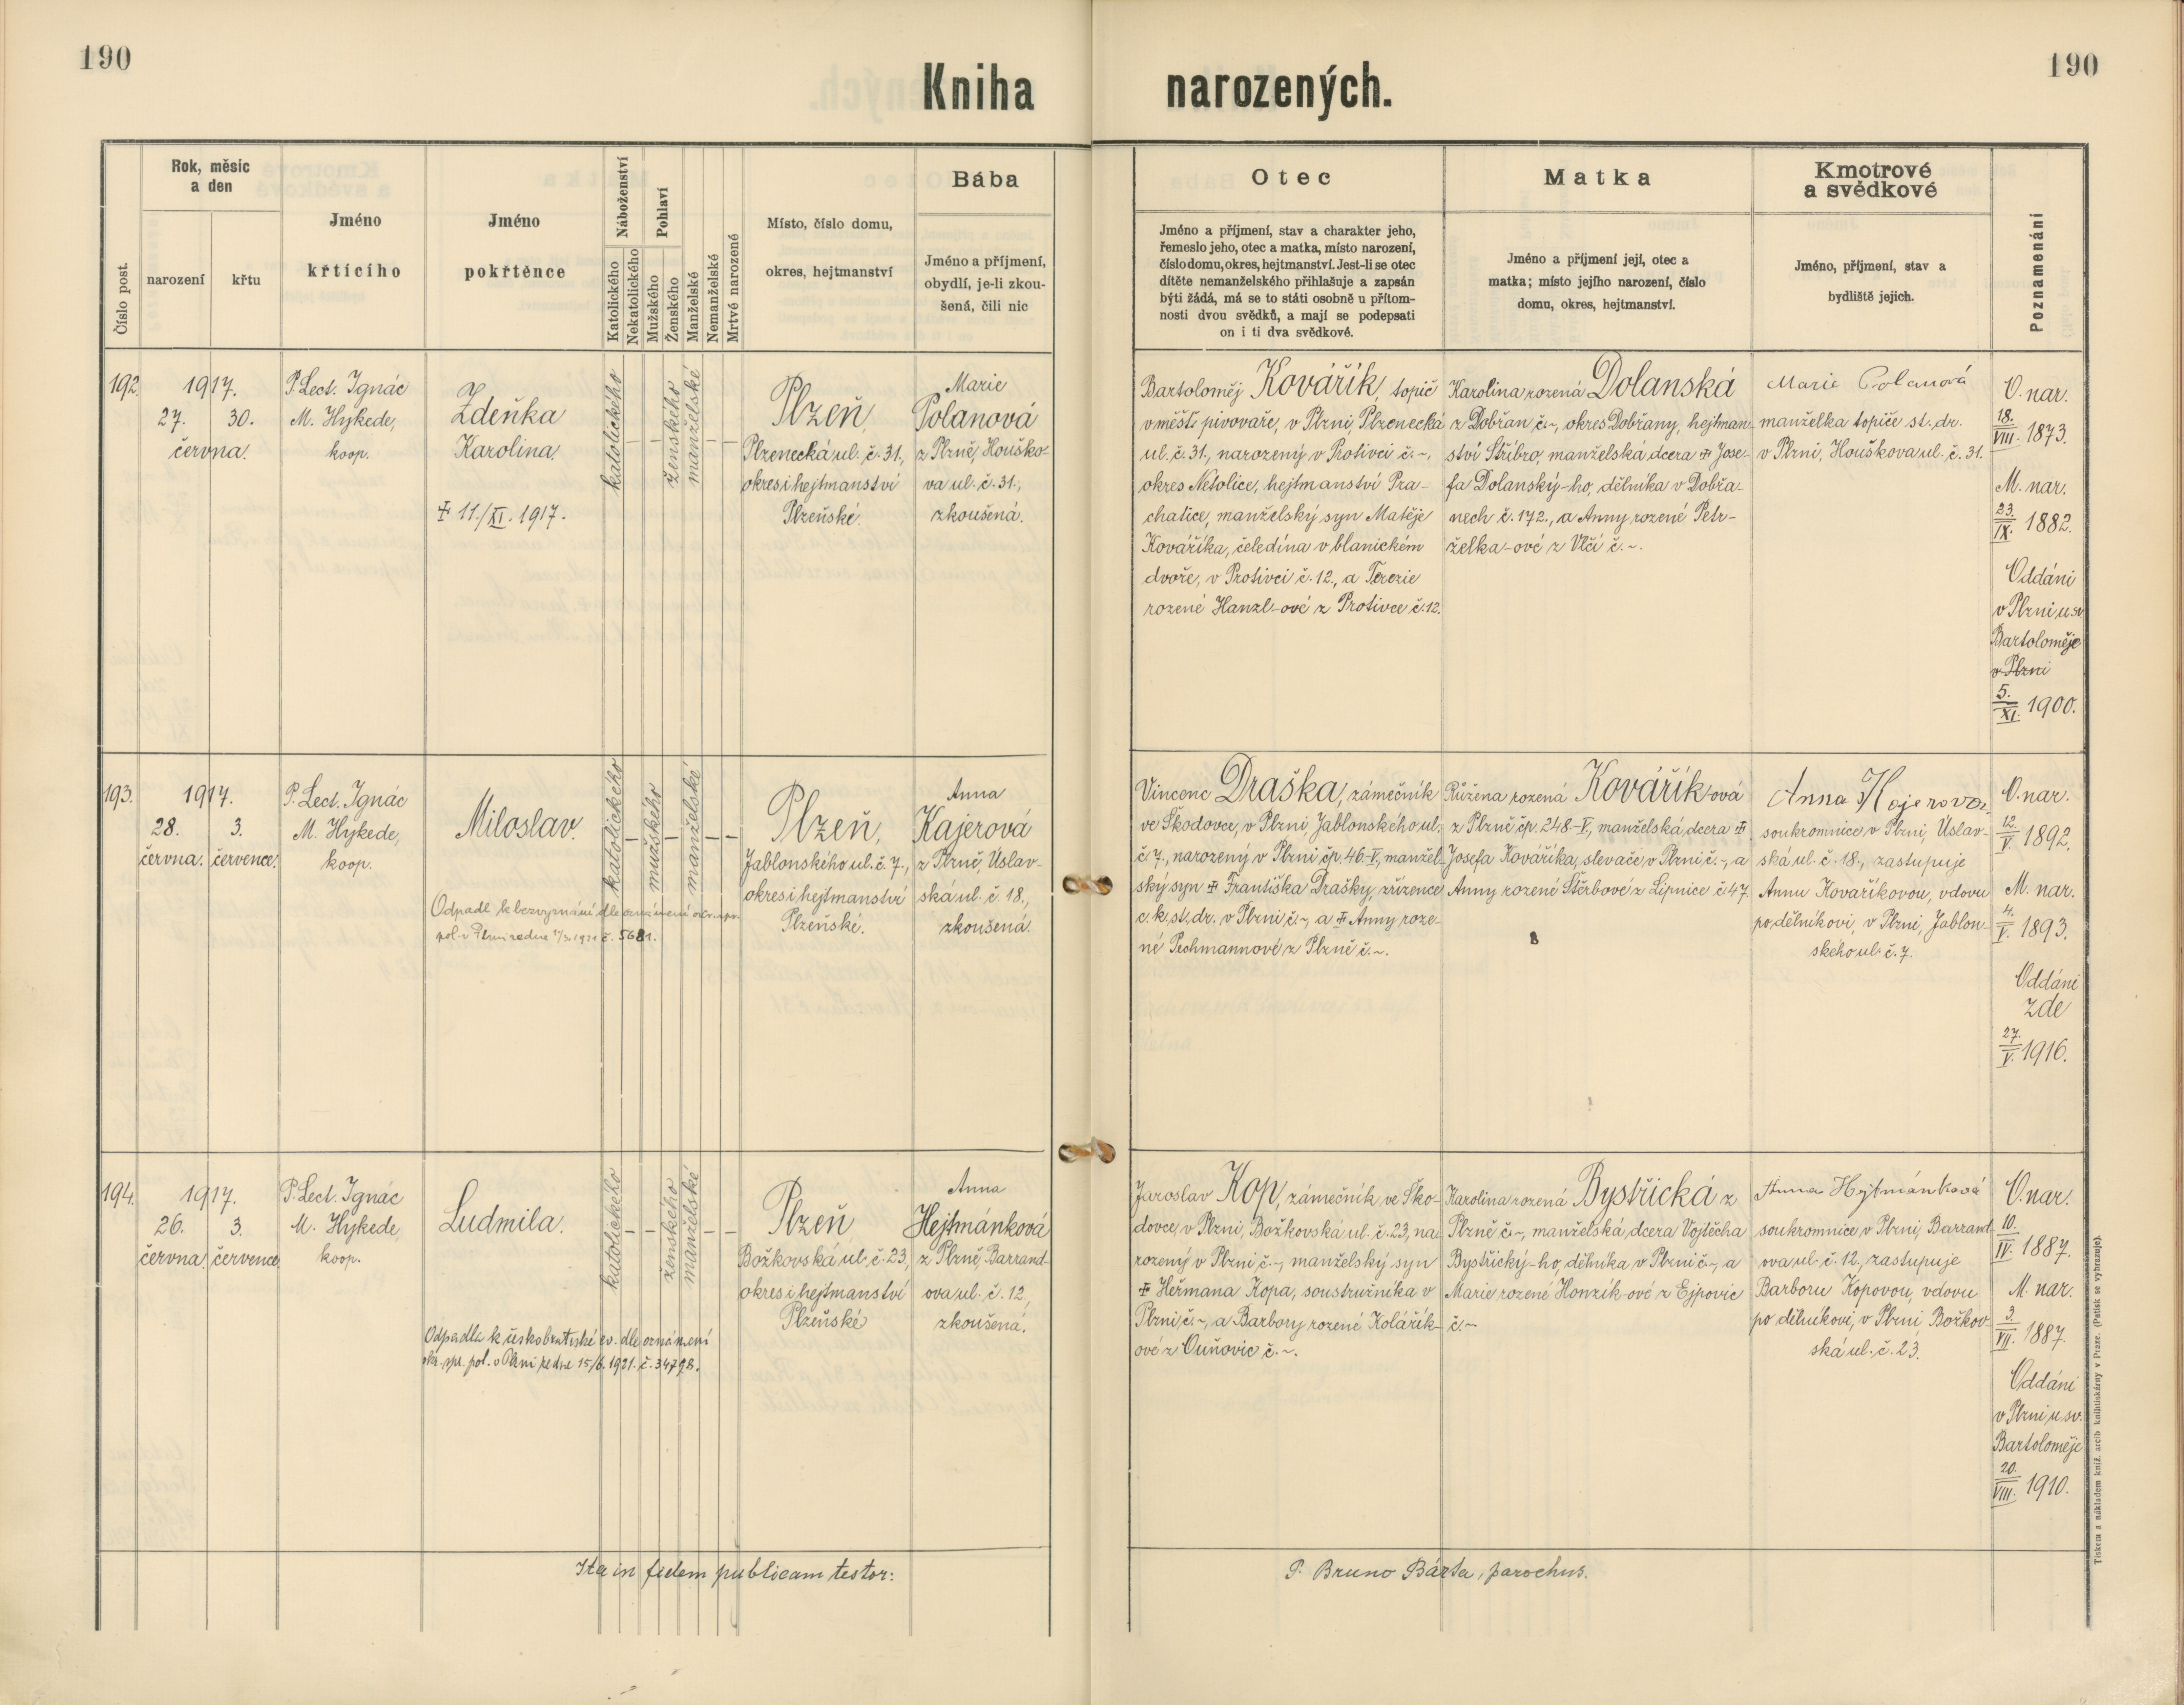 190
190
Kniha narozených.
Číslo post.
Rok, měsíc
a den
narození
křtu
Jméno
křtícího
Jméno
pokřtěnce
Náboženství
Katolického
Nekatolického
Pohlaví
Mužského
Ženského
Manželské
Nemanželské
Mrtvé narozené
Místo, číslo domu,
okres, hejtmanství
Bába
Jméno a příjmení,
obydlí, je-li zkou-
šená, čili nic
Otec
Jméno a příjmení, stav a charakter jeho,
řemeslo jeho, otec a matka, místo narození,
číslo domu, okres, hejtmanství. Jest-li se otec
dítěte nemanželského přihlašuje a zapsán
býti žádá, má se to státi osobně u přítom-
nosti dvou svědků, a mají se podepsati
on i ti dva svědkové.
Matka
Jméno a příjmení její, otec a
matka; místo jejího narození, číslo
domu, okres, hejtmanství.
Kmotrové
a svědkové
Jméno, příjmení, stav a
bydliště jejich.
Poznamenání
192
1917.
27. 30.
června.
P. Lect. Ignác
M. Hykede,
koop.
Zdeňka
Karolina.
✝ 11./XI. 1917.
katolického
–
–
ženského
manželské
–
–
Plzeň,
Plzenecká ul. č. 31.,
okres i hejtmanství
Plzeňské.
Marie
Polanová
z Plzně, Houško-
va ul. č. 31.,
zkoušená.
Bartoloměj Kovářík, topič
v měšť. pivovaře, v Plzni, Plzenecká
ul. č. 31., narozený v Protivci č. ~,
okres Netolice, hejtmanství Pra-
chatice, manželský syn Matěje
Kováříka, čeledína v blanickém
dvoře, v Protivci č. 12., a Terezie
rozené Hanzl-ové z Protivce č. 12.
Karolina rozená Dolanská
z Dobřan č. ~, okres Dobřany, hejtman-
ství Stříbro, manželská dcera ✝ Jose-
fa Dolanský-ho, dělníka v Dobřa-
nech č. 172., a Anny rozené Petr-
želka-ové z Vlčí č. ~.
Marie Polanová
manželka topiče st. dr.
v Plzni, Houškova ul. č. 31.
O. nar.
18./VIII. 1873.
M. nar.
23./IX. 1882.
Oddáni
v Plzni u sv.
Bartoloměje
v Plzni
5./XI. 1900.
193.
1917.
28. 3.
června. července.
P. Lect. Ignác
M. Hykede,
koop.
Miloslav.
Odpadl k bezvyznání dle oznámení
pol. v Plzni ze dne 1921 č. 5681.
katolického
–
mužského
–
manželské
–
–
Plzeň,
Jablonského ul. č. 7.,
okres i hejtmanství
Plzeňské.
Anna
Kajerová
z Plzně, Úslav-
ská ul. č. 18.,
zkoušená.
Vincenc Draška, zámečník
ve Škodovce, v Plzni Jablonského ul.
č. 7., narozený v Plzni čp. 46-V, manžel-
ský syn ✝ Františka Drašky, zřízence
c. k. st. dr. v Plzni č. ~, a ✝ Anny roze-
né Pechmannové z Plzně č. ~.
Růžena rozená Kovářík-ová
z Plzně čp. 248-V, manželská dcera ✝
Josefa Kováříka, slevače v Plzni č. ~, a
Anny rozené Štěrbové z Lipnice č. 47.
Anna Kajerová
soukromnice v Plzni, Úslav-
ská ul. č. 18., zastupuje
Annu Kovaříkovou, vdovu
po dělníkovi, v Plzni, Jablon-
ského ul. č. 7.
O. nar.
12./V. 1892.
M. nar.
4./V. 1893.
Oddáni
zde
27./V. 1916.
194.
1917.
26. 3.
června. července
P. Lect. Ignác
M. Hykede,
koop.
Ludmila.
Odpadla k českobratrské ev. dle oznámení
okr. spr. pol. v Plzni ze dne 15/6. 1921. č. 34798.
katolického
–
–
ženského
manželské
–
–
Plzeň
Božkovská ul. č. 23,
okres i hejtmanství
Plzeňské
Anna
Hejtmánková
z Plzně, Barrand-
ova ul. č. 12,
zkoušená.
Jaroslav Kop, zámečník ve Ško-
dovce, v Plzni, Božkovská ul. č. 23, na-
rozený v Plzni č. ~, manželský syn
✝ Heřmana Kopa, soustružníka v
Plzni č. ~, a Barbory rozené Kolářík-
ové z Ouňovic č. ~.
Karolina rozená Bystřická z
Plzně č. ~, manželská dcera Vojtěcha
Bystřický-ho, dělníka v Plzni č. ~, a
Marie rozené Honzík-ové z Ejpovic
č. ~
Anna Hejtmánková
soukromnice v Plzni, Barrand-
ova ul. č. 12, zastupuje
Barboru Kopovou, vdovu
po dělníkovi, v Plzni Božkov-
ská ul. č. 23.
O. nar.
10./IV. 1887.
M. nar.
3./VII. 1887.
Oddáni
v Plzni u sv.
Bartoloměje
20./VIII. 1910.
Ita in fidem publicam testor:
P. Bruno Bárta, parochus.
Tiskem a nákladem kníž. arcib. knihtiskárny v Praze. (Patisk se vyhrazuje).